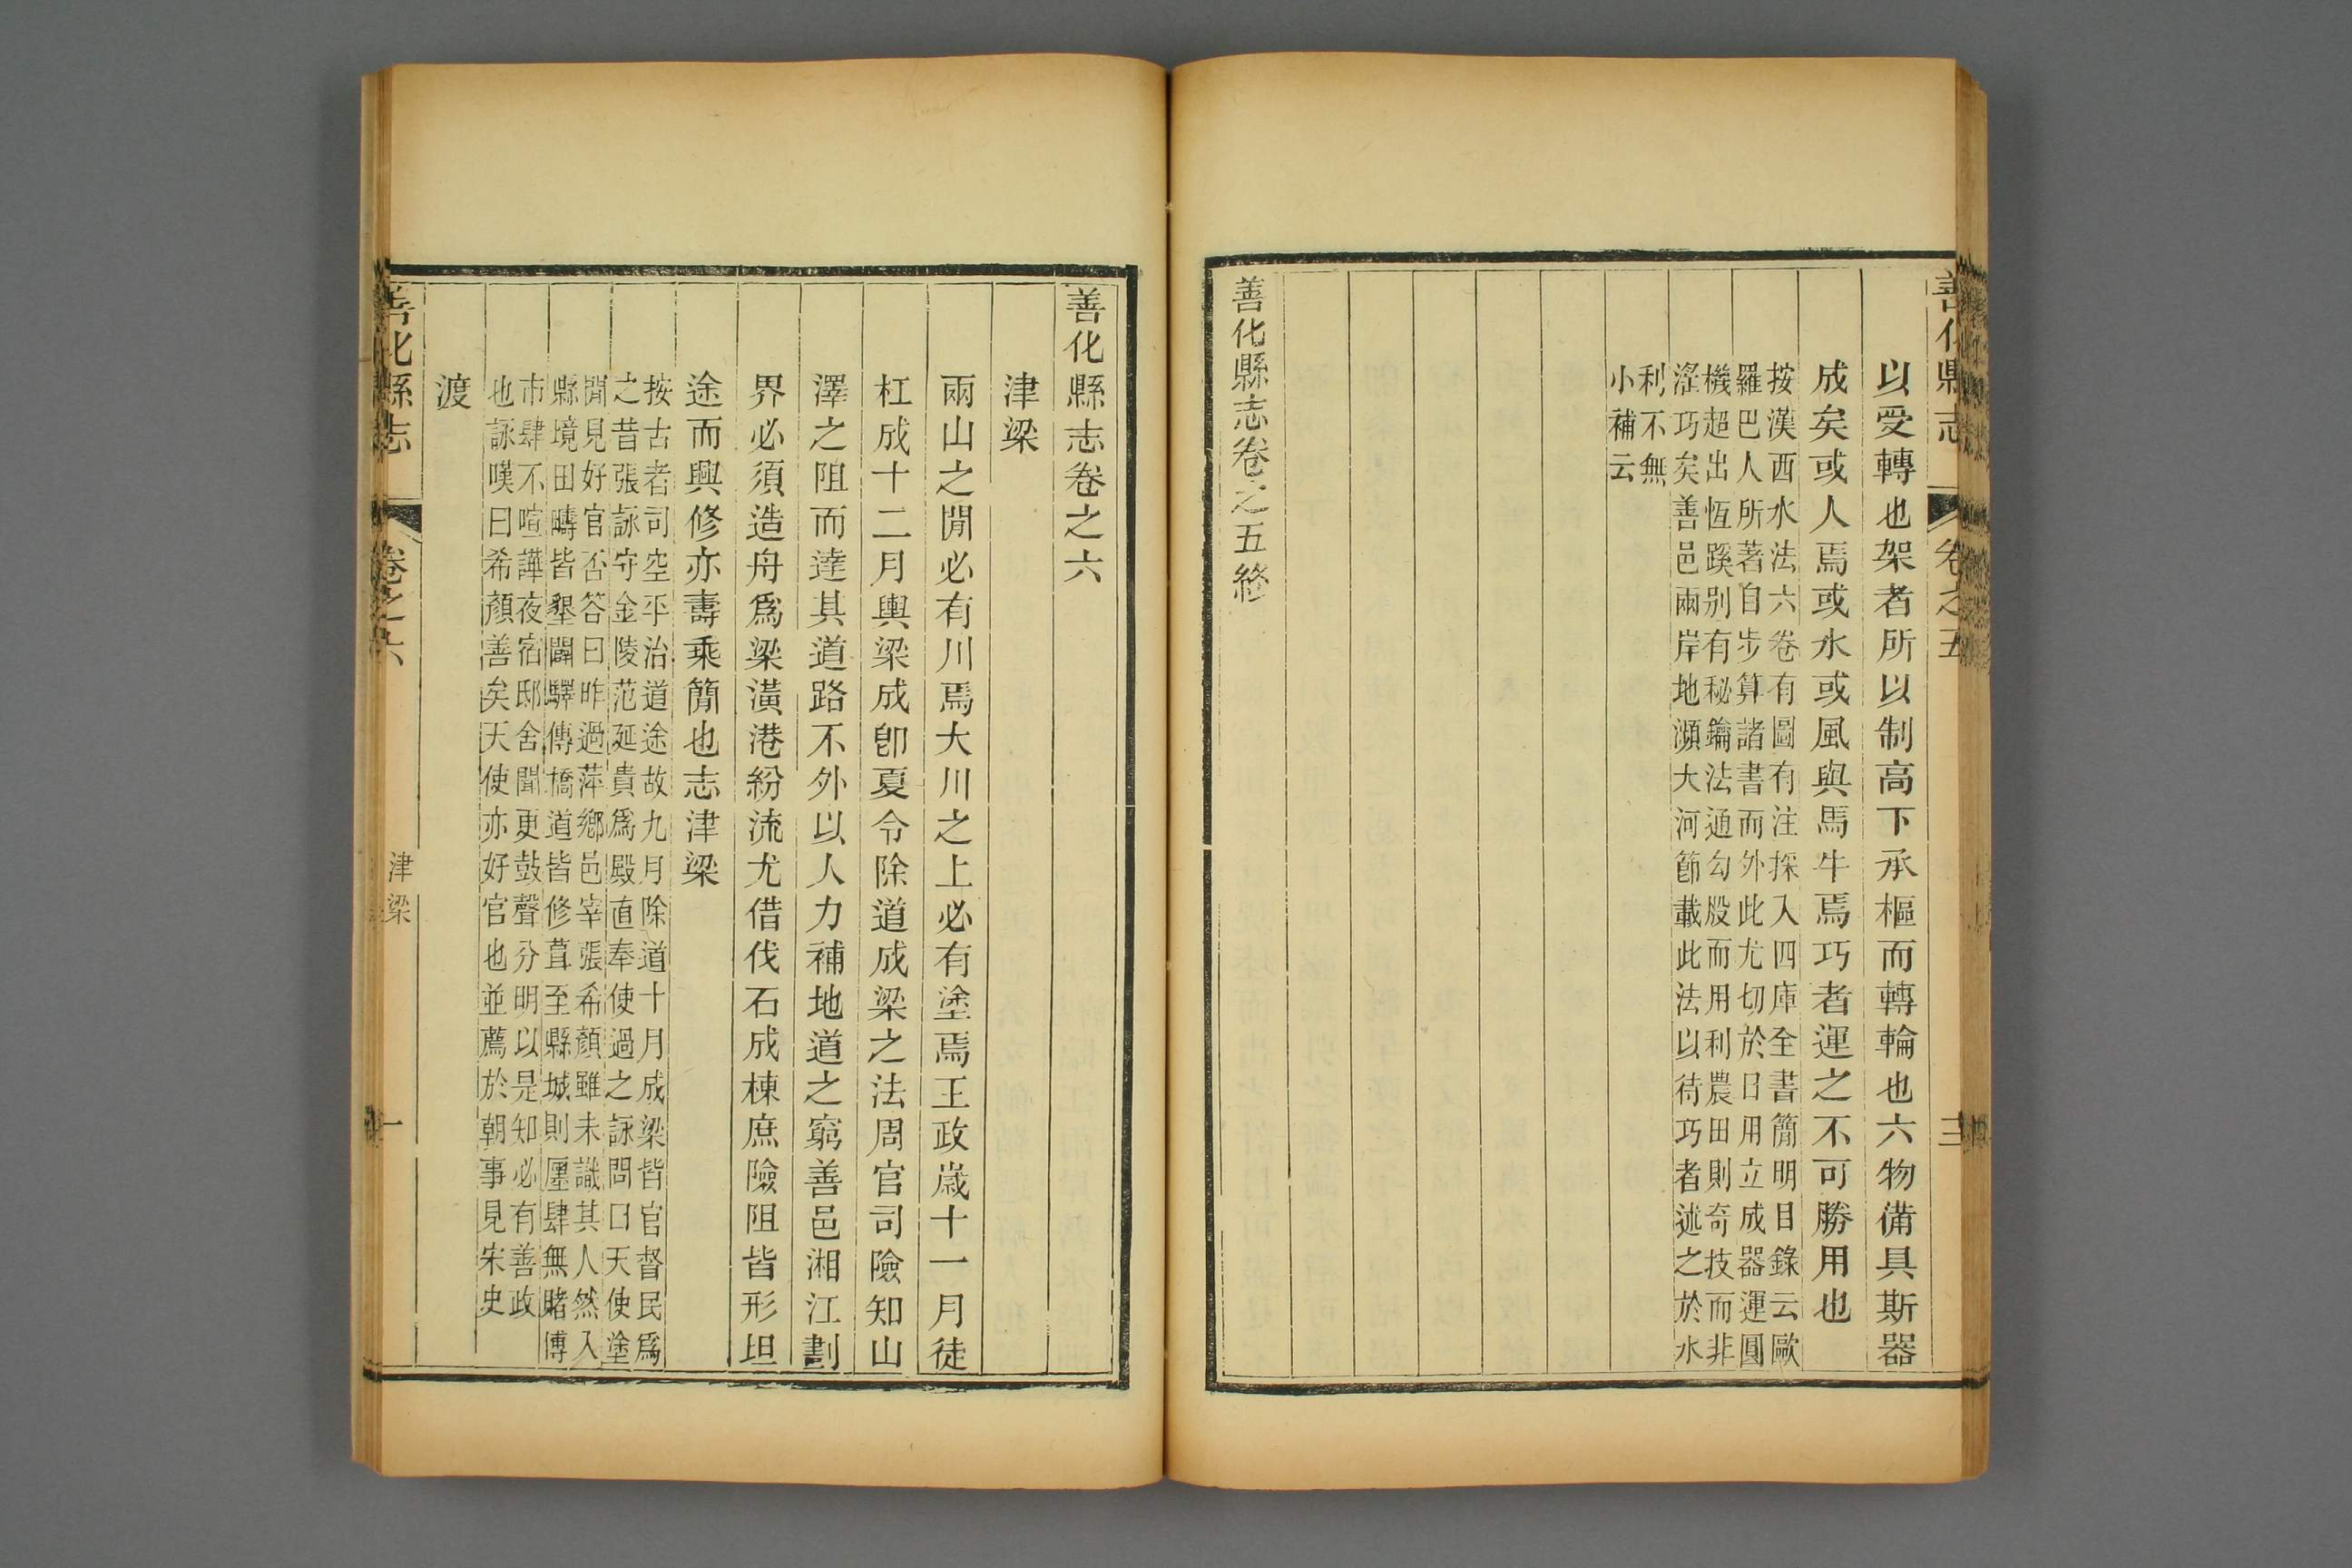 善化縣志
卷之五
三
以受轉也架者所以制高下承樞而轉輪也六物備具斯器
成矣或人焉或水或風與馬牛焉巧者運之不可勝用也
按漢西水法六卷有圖有注採入四庫全書簡明目錄云歐
羅巴人所著自步算諸書而外此尤切於日用立成器運圓
機超出恆蹊別有秘鑰法通勾股而用利農田則奇技而非
淫巧矣善邑兩岸地瀕大河節載此法以待巧者述之於水
利不無
小補云
善化縣志卷之五終
善化縣志卷之六
津梁
兩山之閒必有川焉大川之上必有塗焉王政歲十一月徒
杠成十二月輿梁成卽夏令除道成梁之法周官司險知山
澤之阻而達其道路不外以人力補地道之窮善邑湘江劃
界必須造舟爲梁潢港紛流尤借伐石成棟庶險阻皆形坦
途而興修亦壽乘簡也志津梁
按古者司空平治道途故九月除道十月成梁皆官督民爲
之昔張詠守金陵范延貴爲殿直奉使過之詠問曰天使塗
閒見好官否答曰昨過萍鄉邑宰張希顏雖未識其人然入
縣境田疇皆墾闢驛傳橋道皆修葺至縣城則廛肆無賭博
市肆不喧譁夜宿邸舍聞更鼓聲分明以是知必有善政
也詠嘆曰希顏善矣天使亦好官也並薦於朝事見宋史
渡
善化縣志
卷之六
津梁
一